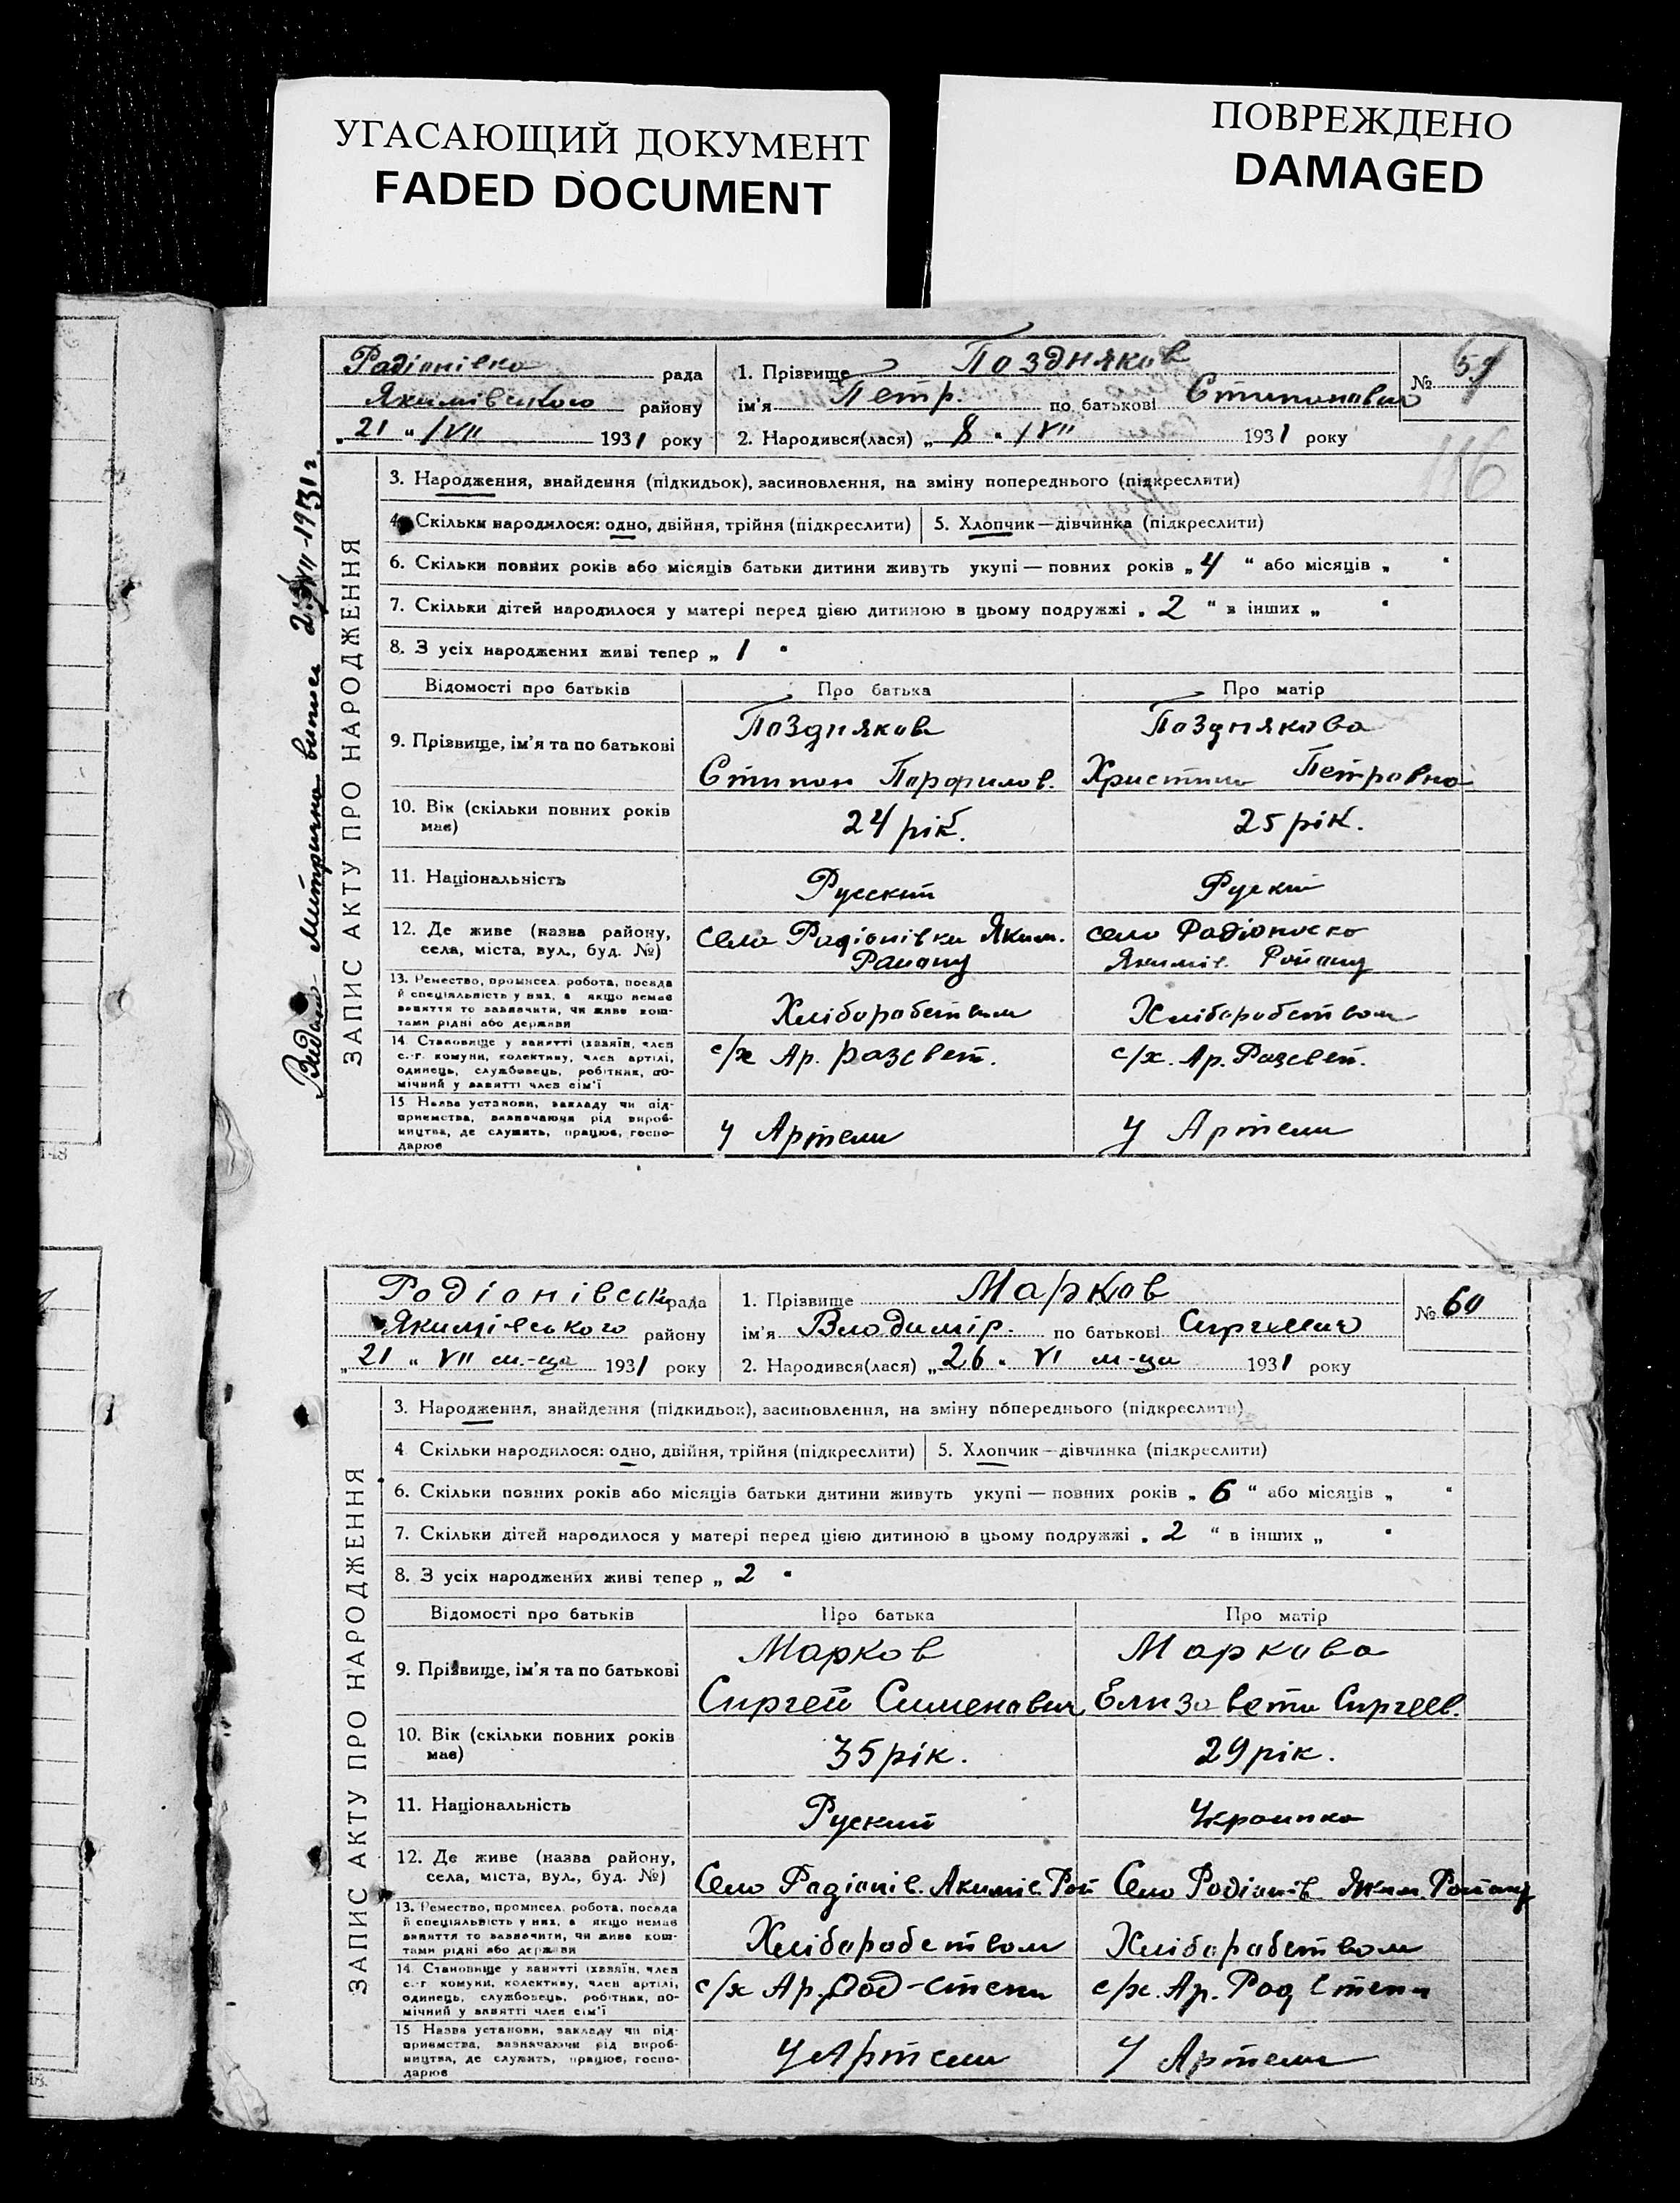 УГАСАЮЩИЙ ДОКУМЕНТ
FADED DOCUMENT
ПОВРЕЖДЕНО
DAMAGED
Радіонівка рада
Якимівського району
„21“ /VII 1931 року
1. Прізвище Поздняков
ім'я Петр. по батькові Стипанович
№ 59
2. Народився(лася) „8“ /VII 1931 року
116
Видан Митрична випись 21/VII-1931 г.
ЗАПИС АКТУ ПРО НАРОДЖЕННЯ
3. Народження, знайдення (підкидьок), засиновлення, на зміну попереднього (підкреслити)
4. Скільки народилося: одно, двійня, трійня (підкреслити) 5. Хлопчик—дівчинка (підкреслити)
6. Скільки повних років або місяців батьки дитини живуть укупі — повних років „4“ або місяців „ “
7. Скільки дітей народилося у матері перед цією дитиною в цьому подружжі „2“ в інших „ “
8. З усіх народжених живі тепер „1“
Відомості про батьків Про батька Про матір
9. Прізвище, ім'я та по батькові
Поздняков
Стипан Парфилов.
Позднякова
Христина Петровна
10. Вік (скільки повних років має)
24 рік.
25 рік.
11. Національність
Русский
Руский
12. Де живе (назва району, села, міста, вул., буд. №)
село Радіонівка Яким.
Району
село Радіонівка
Якимів. Району
13. Ремество, промисел, робота, посада й спеціяльність у них, а якщо немає заняття то зазначити, чи живе коштами рідні або держави
Хліборобством
Хліборобством
14. Становище у занятті (хазяїн, член с.-г. комуни, колективу, член артілі, одинець, службовець, робітник, помічний у занятті член сім'ї
с/х Ар. Розсвет.
с/х. Ар. Розсвет.
15. Назва установи, закладу чи підприємства, визначаючи рід виробництва, де служить, працює, господарює
у Артели
у Артели
148
Родіонівськ рада
Якимівського району
„21“ VII м-ця 1931 року
1. Прізвище Марков
ім'я Владимір. по батькові Сиргеевич
№ 60
2. Народився(лася) „26“ VI м-ца 1931 року
ЗАПИС АКТУ ПРО НАРОДЖЕННЯ
3. Народження, знайдення (підкидьок), засиновлення, на зміну попереднього (підкреслити)
4. Скільки народилося: одно, двійня, трійня (підкреслити) 5. Хлопчик—дівчинка (підкреслити)
6. Скільки повних років або місяців батьки дитини живуть укупі — повних років „6“ або місяців „ “
7. Скільки дітей народилося у матері перед цією дитиною в цьому подружжі „2“ в інших „ “
8. З усіх народжених живі тепер „2“
Відомості про батьків Про батька Про матір
9. Прізвище, ім'я та по батькові
Марков
Сиргей Сименович
Маркова
Елизавета Сиргеев.
10. Вік (скільки повних років має)
35 рік.
29 рік.
11. Національність
Руский
Украинка
12. Де живе (назва району, села, міста, вул., буд. №)
Село Радіонів. Якимів. Рай
Село Родіонів Яким. Району
13. Ремество, промисел, робота, посада й спеціяльність у них, а якщо немає заняття то зазначити, чи живе коштами рідні або держави
Хліборобством
Хліборобством
14. Становище у занятті (хазяїн, член с.-г. комуни, колективу, член артілі, одинець, службовець, робітник, помічний у занятті член сім'ї
с/х Ар.
с/х. Ар.
15. Назва установи, закладу чи підприємства, зазначаючи рід виробництва, де служить, працює, господарює
у Артели
у Артели